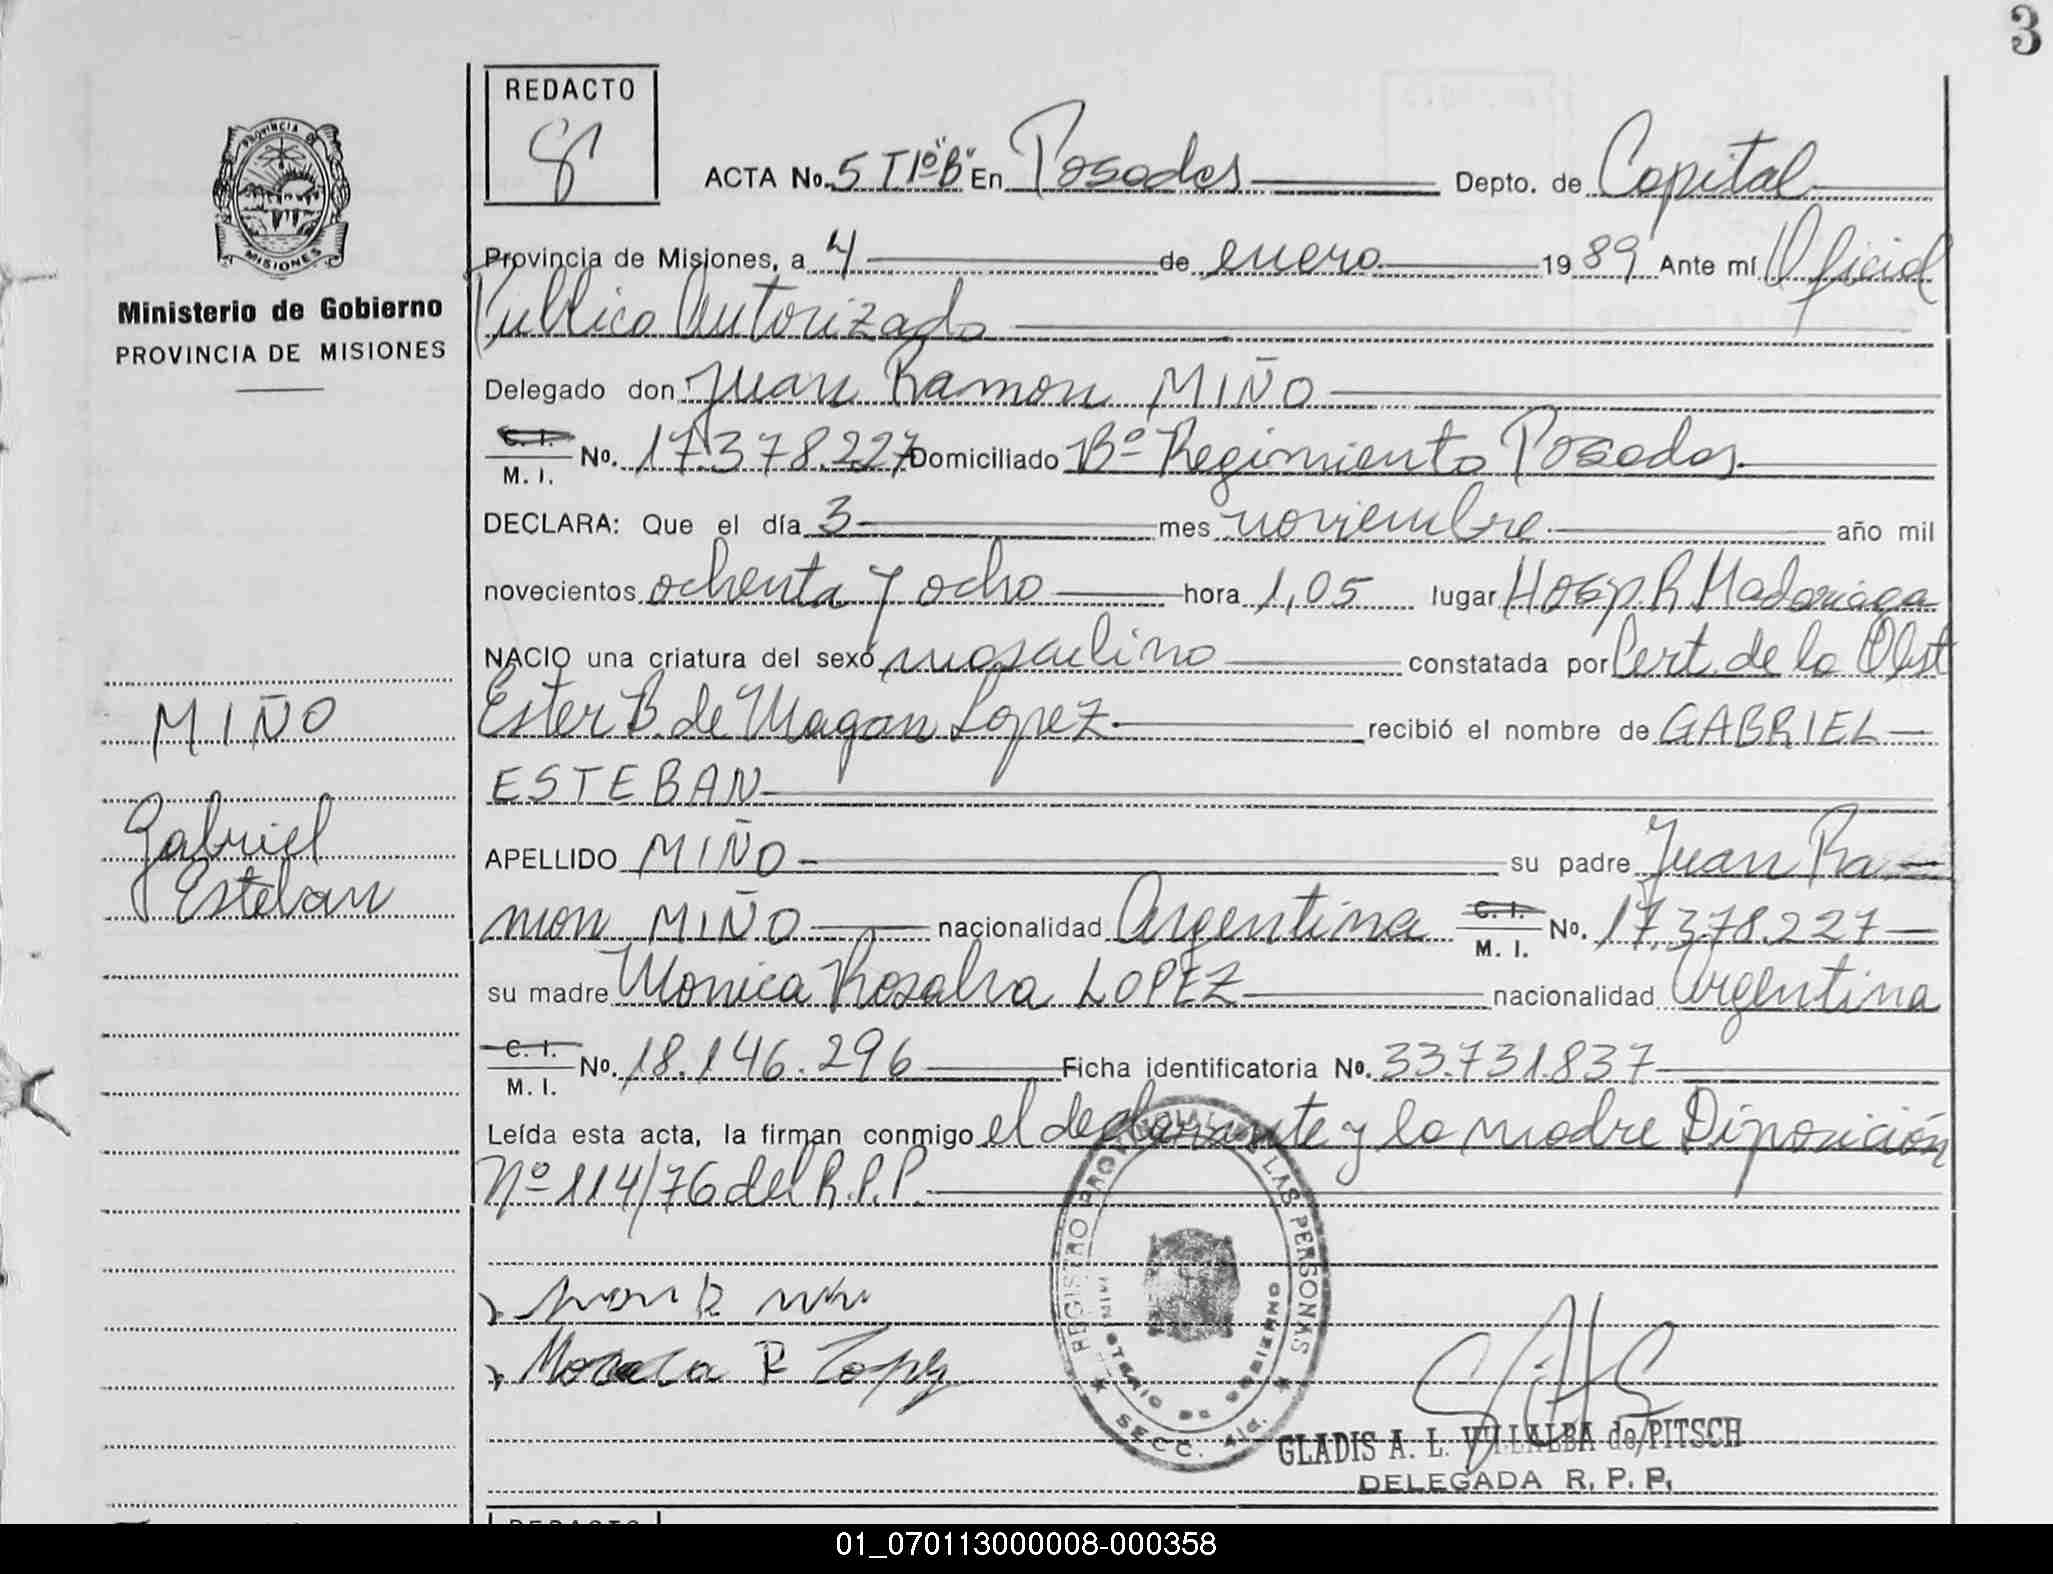 3
REDACTO
ACTA No. 5 T1º "B" En Posadas Depto. de Capital
PROVINCIA DE
MISIONES
Ministerio de Gobierno
PROVINCIA DE MISIONES
Provincia de Misiones, a 4 de enero 1989 Ante mí Oficial
Publico Autorizado
Delegado don Juan Ramon MIÑO
C. I.
M. I. No. 17.378.227 Domiciliado Bº Regimiento Posadas
DECLARA: Que el día 3 mes noviembre año mil
novecientos ochenta y ocho hora 1,05 lugar Hosp R Madariaga
NACIO una criatura del sexo masculino constatada por Cert. de la Obst
Ester B. de Magan Lopez recibió el nombre de GABRIEL
ESTEBAN
APELLIDO MIÑO su padre Juan Ra
mon MIÑO nacionalidad Argentina C. I. M. I. No. 17.378.227
su madre Monica Rosalva LOPEZ nacionalidad Argentina
C. I.
M. I. No. 18.146.296 Ficha identificatoria No. 33.731.837
Leída esta acta, la firman conmigo el declarante y la madre Diposición
Nº 114/76 del R.P.P.
MIÑO
Gabriel
Esteban
REGISTRO PROVINCIAL DE LAS PERSONAS
MINISTERIO DE GOBIERNO
SECC. 4ta.
R Lopez
GLADIS A. L. VILLALBA de PITSCH
DELEGADA R. P. P.
REDACTO
01_070113000008-000358